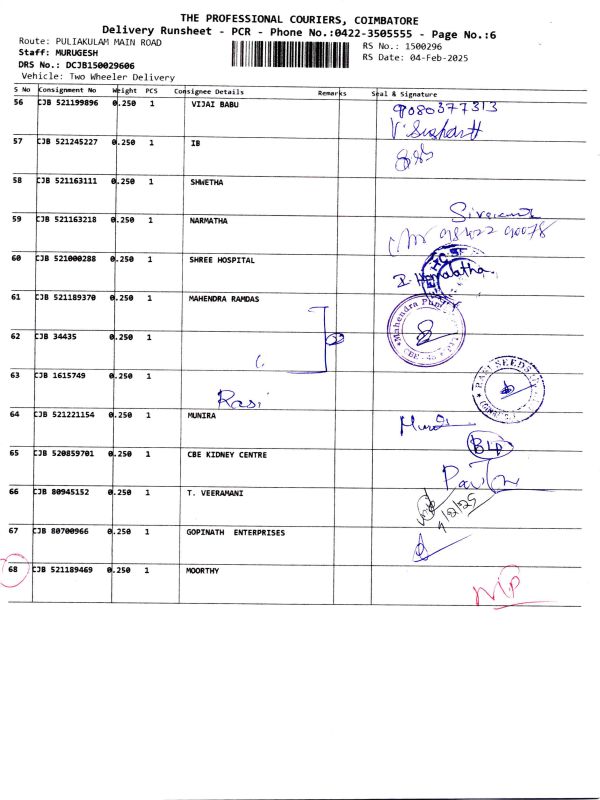 THE PROFESSIONAL COURIERS, COIMBATORE
Delivery Runsheet - PCR - Phone No.:0422-3505555 - Page No.:6
Route: PULIAKULAM MAIN ROAD
RS No.: 1500296
Staff: MURUGESH
RS Date: 04-Feb-2025
DRS No.: DCJB150029606
Vehicle: Two Wheeler Delivery
S No Consignment No Weight PCS Consignee Details Remarks Seal & Signature
56 CJB 521199896 0.250 1 VIJAI BABU 9080377313
57 CJB 521245227 0.250 1 IB
58 CJB 521163111 0.250 1 SHWETHA
59 CJB 521163218 0.250 1 NARMATHA
60 CJB 521000288 0.250 1 SHREE HOSPITAL Hemalatha
61 CJB 521189370 0.250 1 MAHENDRA RAMDAS
62 CJB 34435 0.250 1
63 CJB 1615749 0.250 1 Rasi RASI SEEDS
64 CJB 521221154 0.250 1 MUNIRA
65 CJB 520859701 0.250 1 CBE KIDNEY CENTRE
66 CJB 80945152 0.250 1 T. VEERAMANI 4/2/25
67 CJB 80700966 0.250 1 GOPINATH ENTERPRISES
68 CJB 521189469 0.250 1 MOORTHY